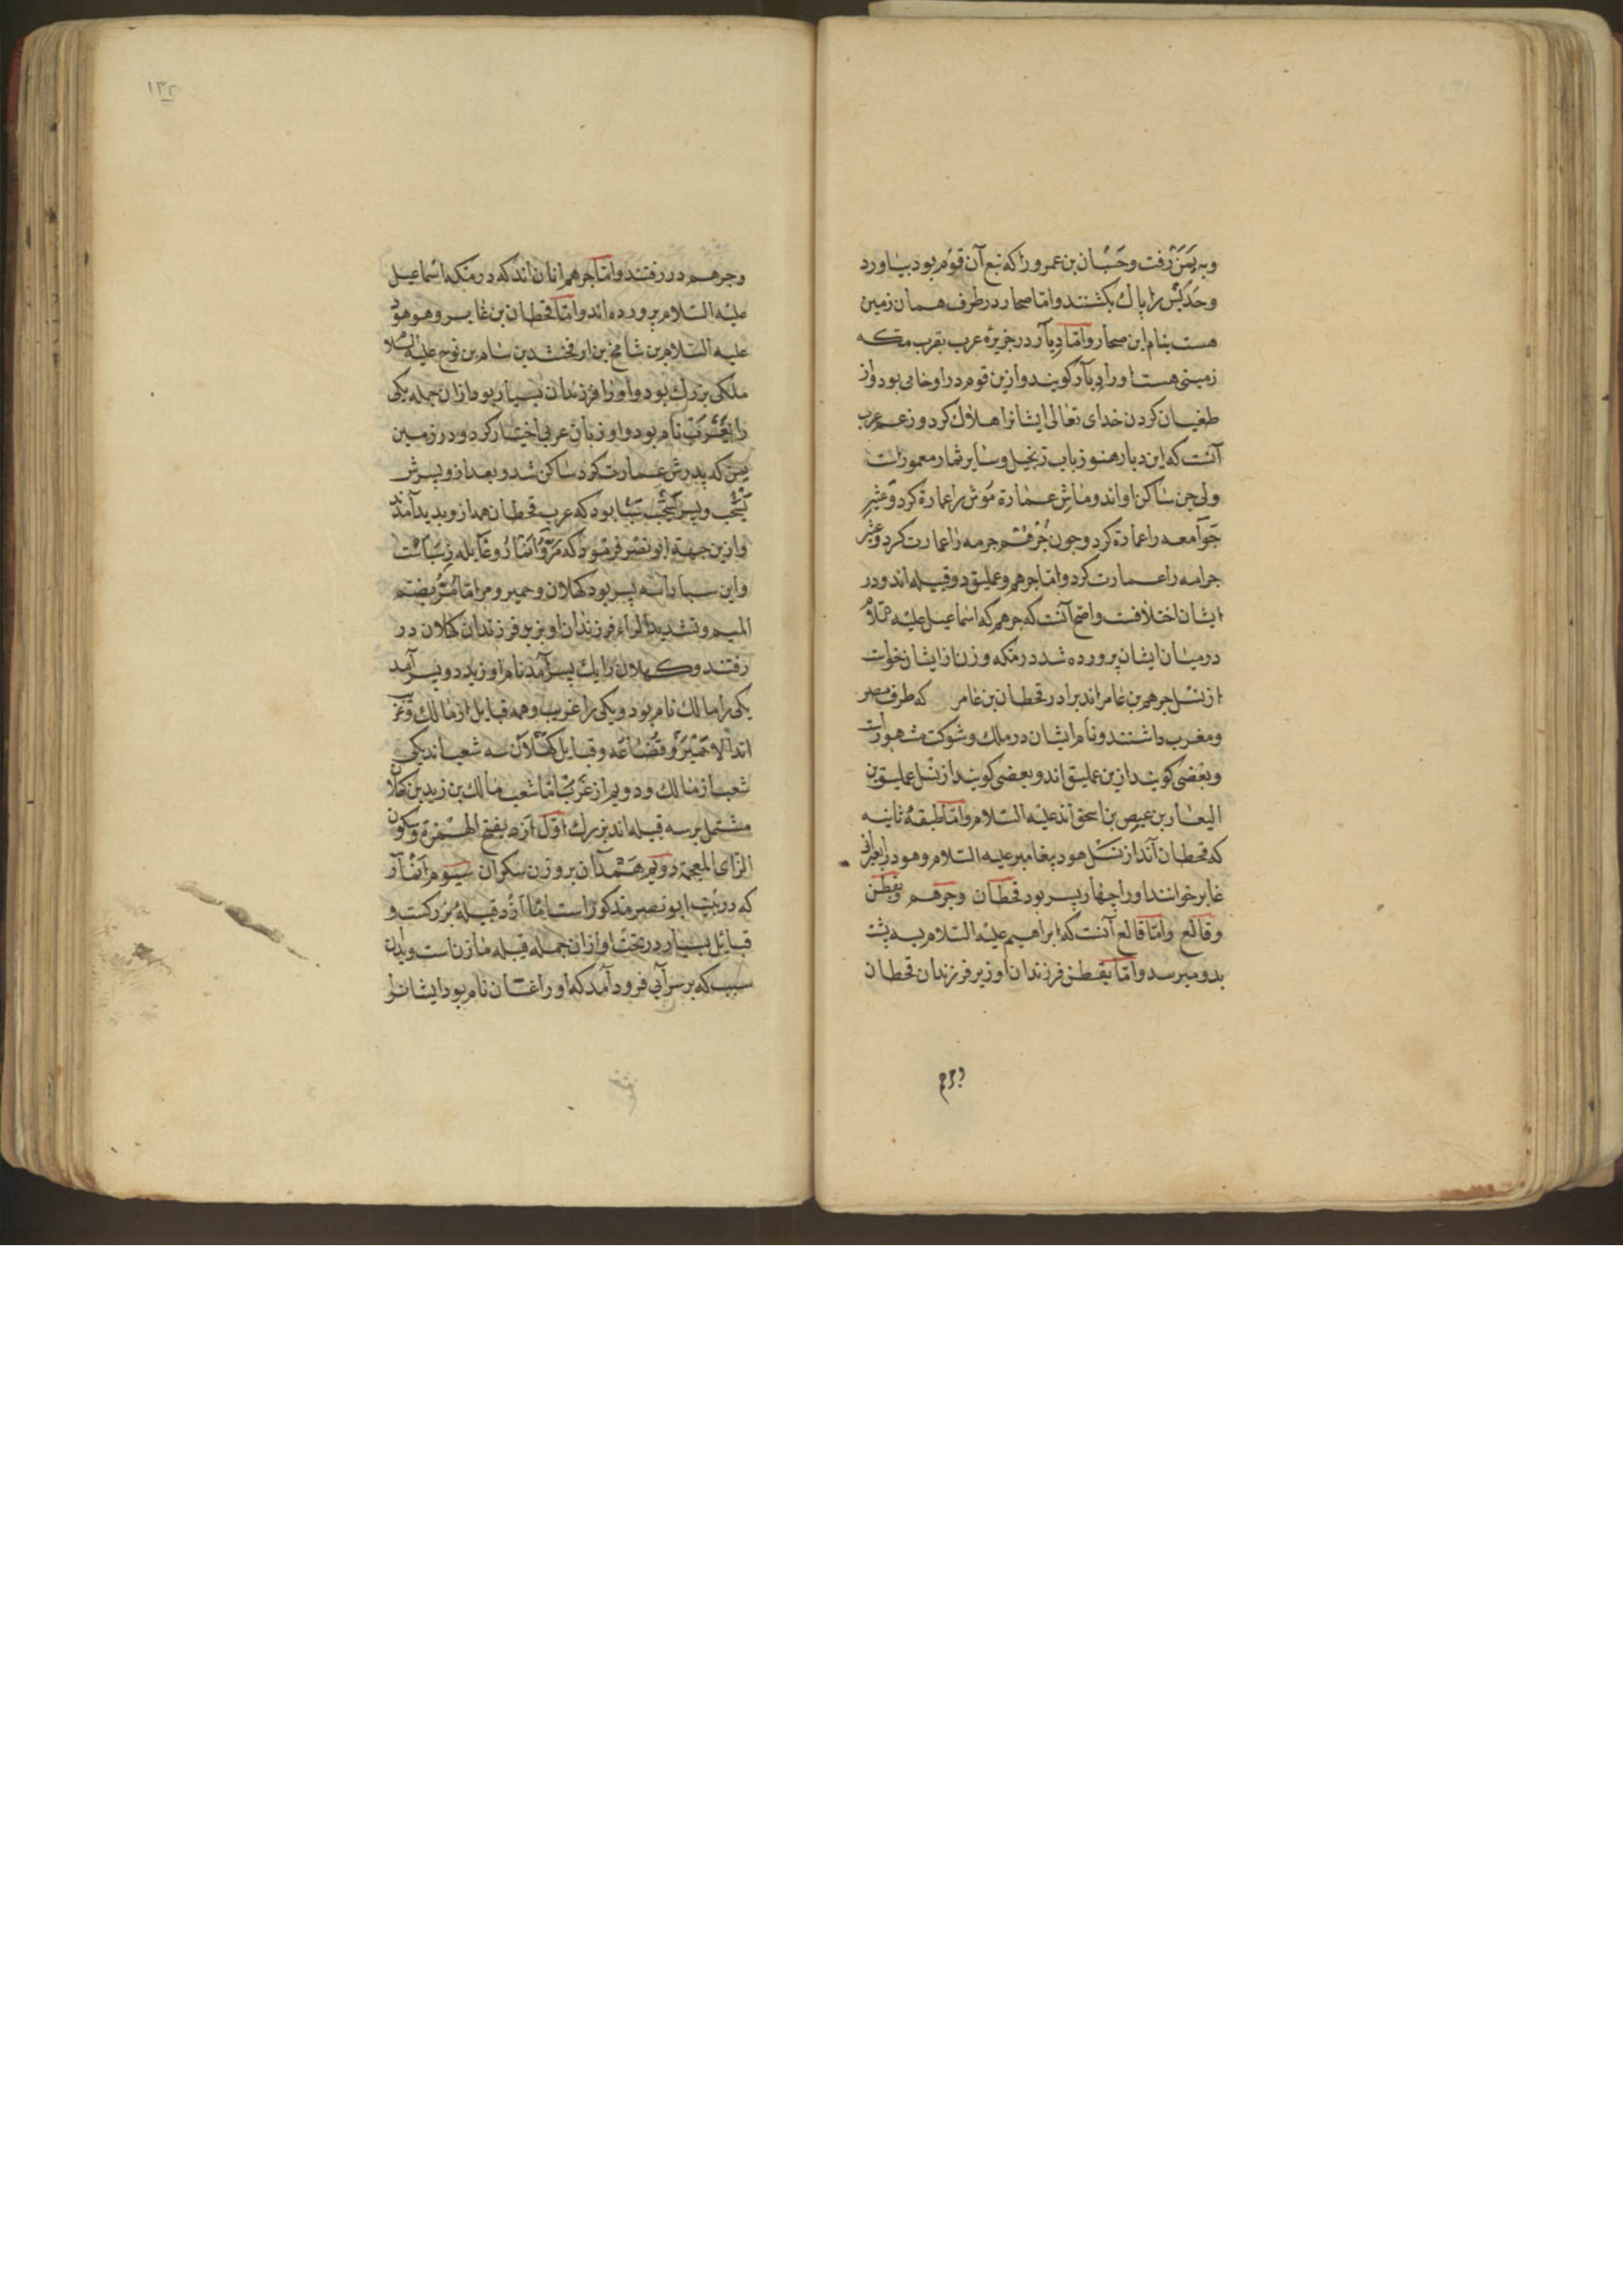 وبه یَمَن رفت وحَسّان بن عمرو را که تبع آن قوم بود بیاورد
وجَدِیْس را پاك بکشتند وامّا صحار در طرف همان زمین
هست بنام ابن صحار وامّا دِبآر در جزیرهٔ عرب بقرب مکه
زمینی هست اورا دبآر کویند وازین قوم در او خامی بود واز
طغیان کردن خدای تعالی ایشانرا هلاك کرد وزعم عرب
آنست که این دبار هنوز باب ونخیل وسایر ثمار معمورات
ولی جن ساکن اواند
جرامه را عمارت کرد وامّا جرهم وعملیق دو قبیله اند ودر
ایشان اختلافست واصح آنست که جرهم که اسماعیل علیه السّلام
در میان ایشان پرورده شد در مکه وزن از ایشان خواست
از نسل جرهم بن عامراند برادر قحطان بن عامر که طرف مصر
ومغرب داشتند ونام ایشان در ملك وشوکت مشهورات
وبعضی کویند ازین عملیق اند وبعضی کویند از نسل عملیق بن
الیعار بن عیص بن اسحق اند علیه السّلام وامّا طبقهٔ ثانیه
که قحطان آند از نسل هود پیغامبر علیه السّلام وهود را
غابر خوانند اورا چهار پسر بود قحطان وجرهم ویقطن
وقالع وامّا قالع آنست که ابراهیم علیه السّلام بسه پشت
بدو میرسد وامّا یقطن فرزندان او زیر فرزندان قحطان
وجرهم در رفتند وامّا جرهم انان اند که در مکه اسماعیل
علیه السّلام پرورده اند وامّا قحطان بن غابر وهو هود
علیه السّلام بن شامخ بن ارفخشد بن سام بن نوح علیه السلام
ملکی بزرك بود واورا فرزندان بسیار بود ازان جمله یکی
را یَعْرُبْ نام بود واو زبان عربی اختیار کرد ودر زمین
یمن که پدرش عمارت کرد ساکن شد وبعد ازو پسرش
یَشْجُب وپسر یَشْجُب سَبَا بود که عرب قحطان همه ازو پدید آمدند
وازین جهة ابو نصر فرمود که
واین سبا را سه پسر بود کهلان وحمیر ومر امّا مُرّ بضم
المیم وتشدید الراء فرزندان او زیر فرزندان کهلان در
رفتند وکهلان را یك پسر آمد نام او زید دو پسر آمد
یکی را مالك نام بود ویکی را غریب وهمه قبایل از مالك وعر
اند الا حمیر وقُضاعه وقبایل کهلان سه شعب اند یکی
شعب از مالك ودویم از عَرَبْ امّا شعب مالك بن زید بن کهلان
مشتمل بر سه قبیله اند بزرك اوّل اَزْد بفتح الهمزة وسکون
الزای المعجمة دویم هَمْدَان بر وزن سکران سیوم اَنْمَار
که در بیت ابو نصر مذکور است امّا اَزْد قبیلهٔ بزرکست و
قبائل بسیار در تحت او ازان جمله قبیله مازن است وبدان
سبب که بر سر آبی فرود آمد که اورا غسّان نام بود ایشانرا
١٣٢